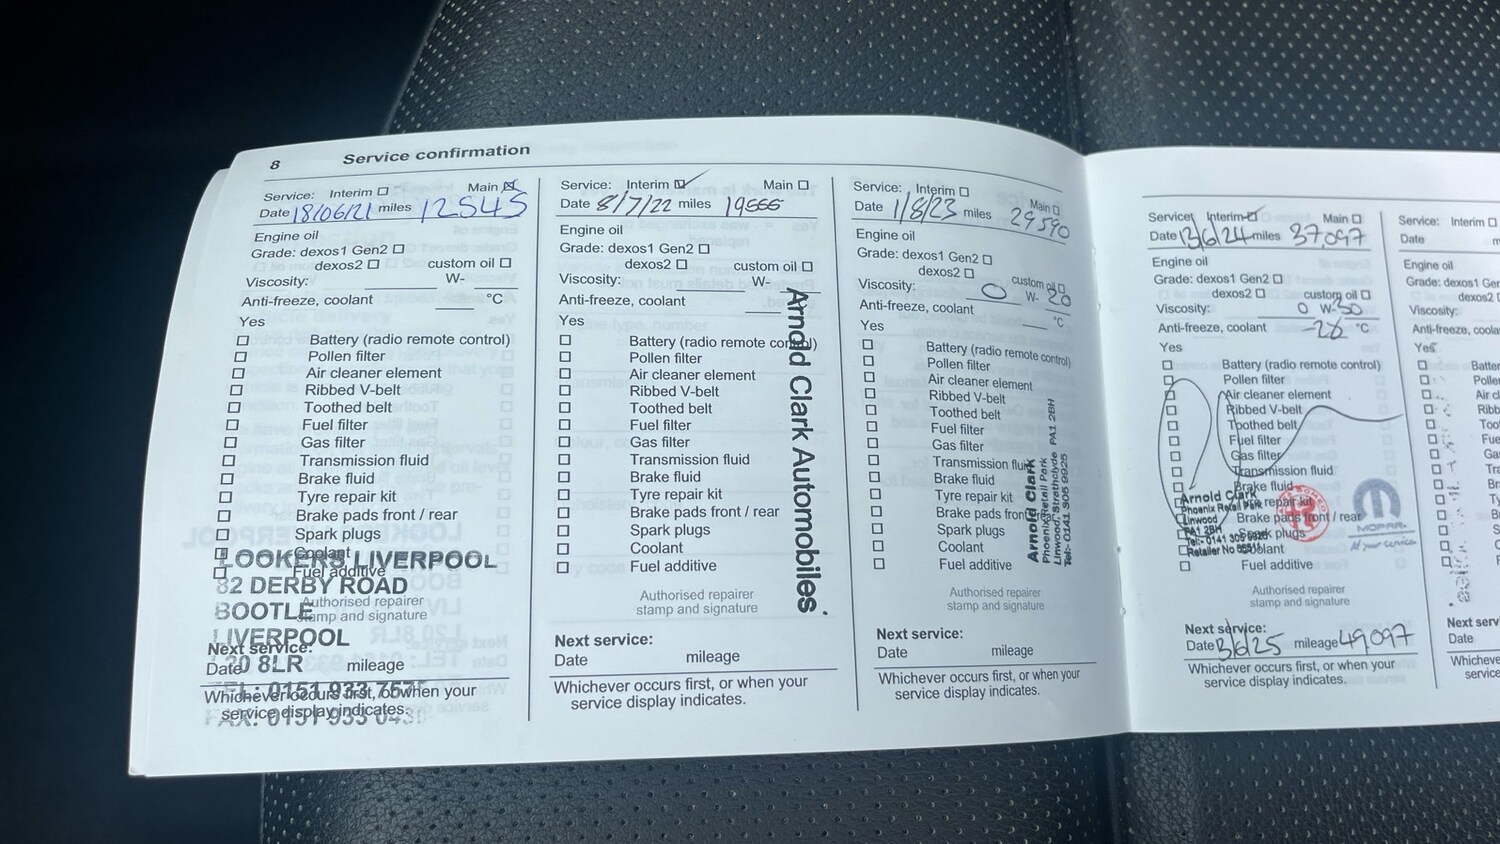 8 Service confirmation
Service: Interim Main
Date 18/06/21 miles 12545
Engine oil
Grade: dexos1 Gen2
dexos2 custom oil
Viscosity: W-
Anti-freeze, coolant °C
Yes
Battery (radio remote control)
Pollen filter
Air cleaner element
Ribbed V-belt
Toothed belt
Fuel filter
Gas filter
Transmission fluid
Brake fluid
Tyre repair kit
Brake pads front / rear
Spark plugs
Coolant
Fuel additive
LOOKERS LIVERPOOL
82 DERBY ROAD
BOOTLE
LIVERPOOL
L20 8LR
Authorised repairer
stamp and signature
Next service:
Date mileage
Whichever occurs first, or when your
service display indicates.
Service: Interim Main
Date 8/7/22 miles
Engine oil
Grade: dexos1 Gen2
dexos2 custom oil
Viscosity: W-
Anti-freeze, coolant
Yes
Battery (radio remote control)
Pollen filter
Air cleaner element
Ribbed V-belt
Toothed belt
Fuel filter
Gas filter
Transmission fluid
Brake fluid
Tyre repair kit
Brake pads front / rear
Spark plugs
Coolant
Fuel additive
Arnold Clark Automobiles
Authorised repairer
stamp and signature
Next service:
Date mileage
Whichever occurs first, or when your
service display indicates.
Service: Interim Main
Date 1/8/23 miles 29590
Engine oil
Grade: dexos1 Gen2
dexos2 custom oil
Viscosity: 0 W- 20
Anti-freeze, coolant °C
Yes
Battery (radio remote control)
Pollen filter
Air cleaner element
Ribbed V-belt
Toothed belt
Fuel filter
Gas filter
Transmission fluid
Brake fluid
Tyre repair kit
Brake pads front / rear
Spark plugs
Coolant
Fuel additive
Arnold Clark
Phoenix Retail Park
Linwood, Strathclyde PA1 2BH
Tel:- 0141 306 9925
Authorised repairer
stamp and signature
Next service:
Date mileage
Whichever occurs first, or when your
service display indicates.
Service: Interim Main
Date 13/6/24 miles 37,097
Engine oil
Grade: dexos1 Gen2
dexos2 custom oil
Viscosity: 0 W-30
Anti-freeze, coolant -26 °C
Yes
Battery (radio remote control)
Pollen filter
Air cleaner element
Ribbed V-belt
Toothed belt
Fuel filter
Gas filter
Transmission fluid
Brake fluid
Tyre repair kit
Brake pads front / rear
Spark plugs
Coolant
Fuel additive
Arnold Clark
Phoenix Retail Park
Linwood
PA1 2BH
MOPAR
At your service
Authorised repairer
stamp and signature
Next service:
Date 13/6/25 mileage 49,097
Whichever occurs first, or when your
service display indicates.
Service: Interim
Date
Engine oil
Grade: dexos1 Gen
dexos2
Viscosity:
Anti-freeze, coola
Yes
Next serv
Date
Whicheve
service